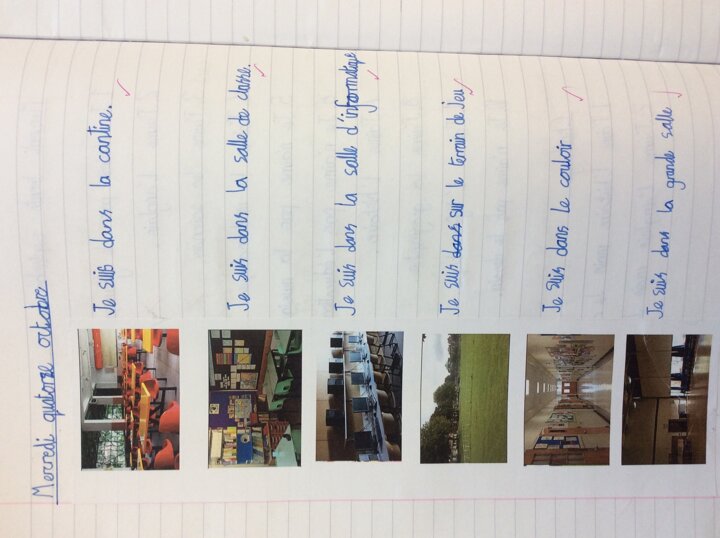 Mercredi quatorze octobre
Je suis dans la cantine.
Je suis dans la salle de classe.
Je suis dans la salle d'informatique
Je suis dans sur le terrain de Jeu
Je suis dans le couloir
Je suis dans la grande salle